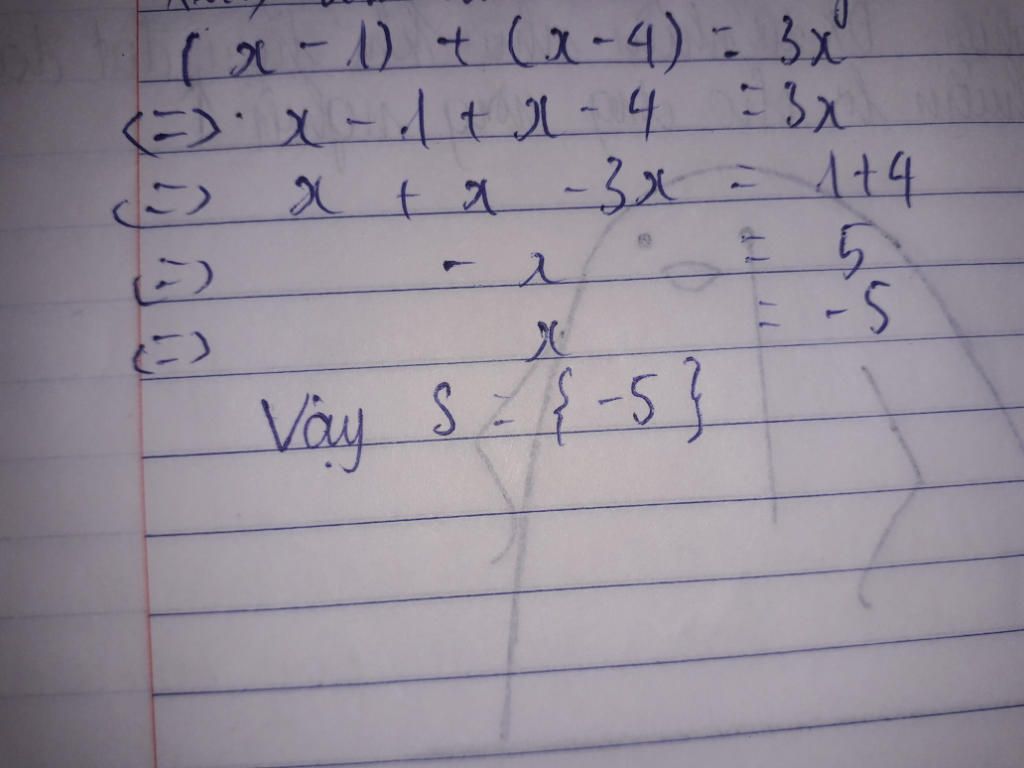 (x - 1) + (x - 4) = 3x
<=> x - 1 + x - 4 = 3x
<=> x + x - 3x = 1 + 4
<=> - x = 5
<=> x = -5
Vậy S = { -5 }